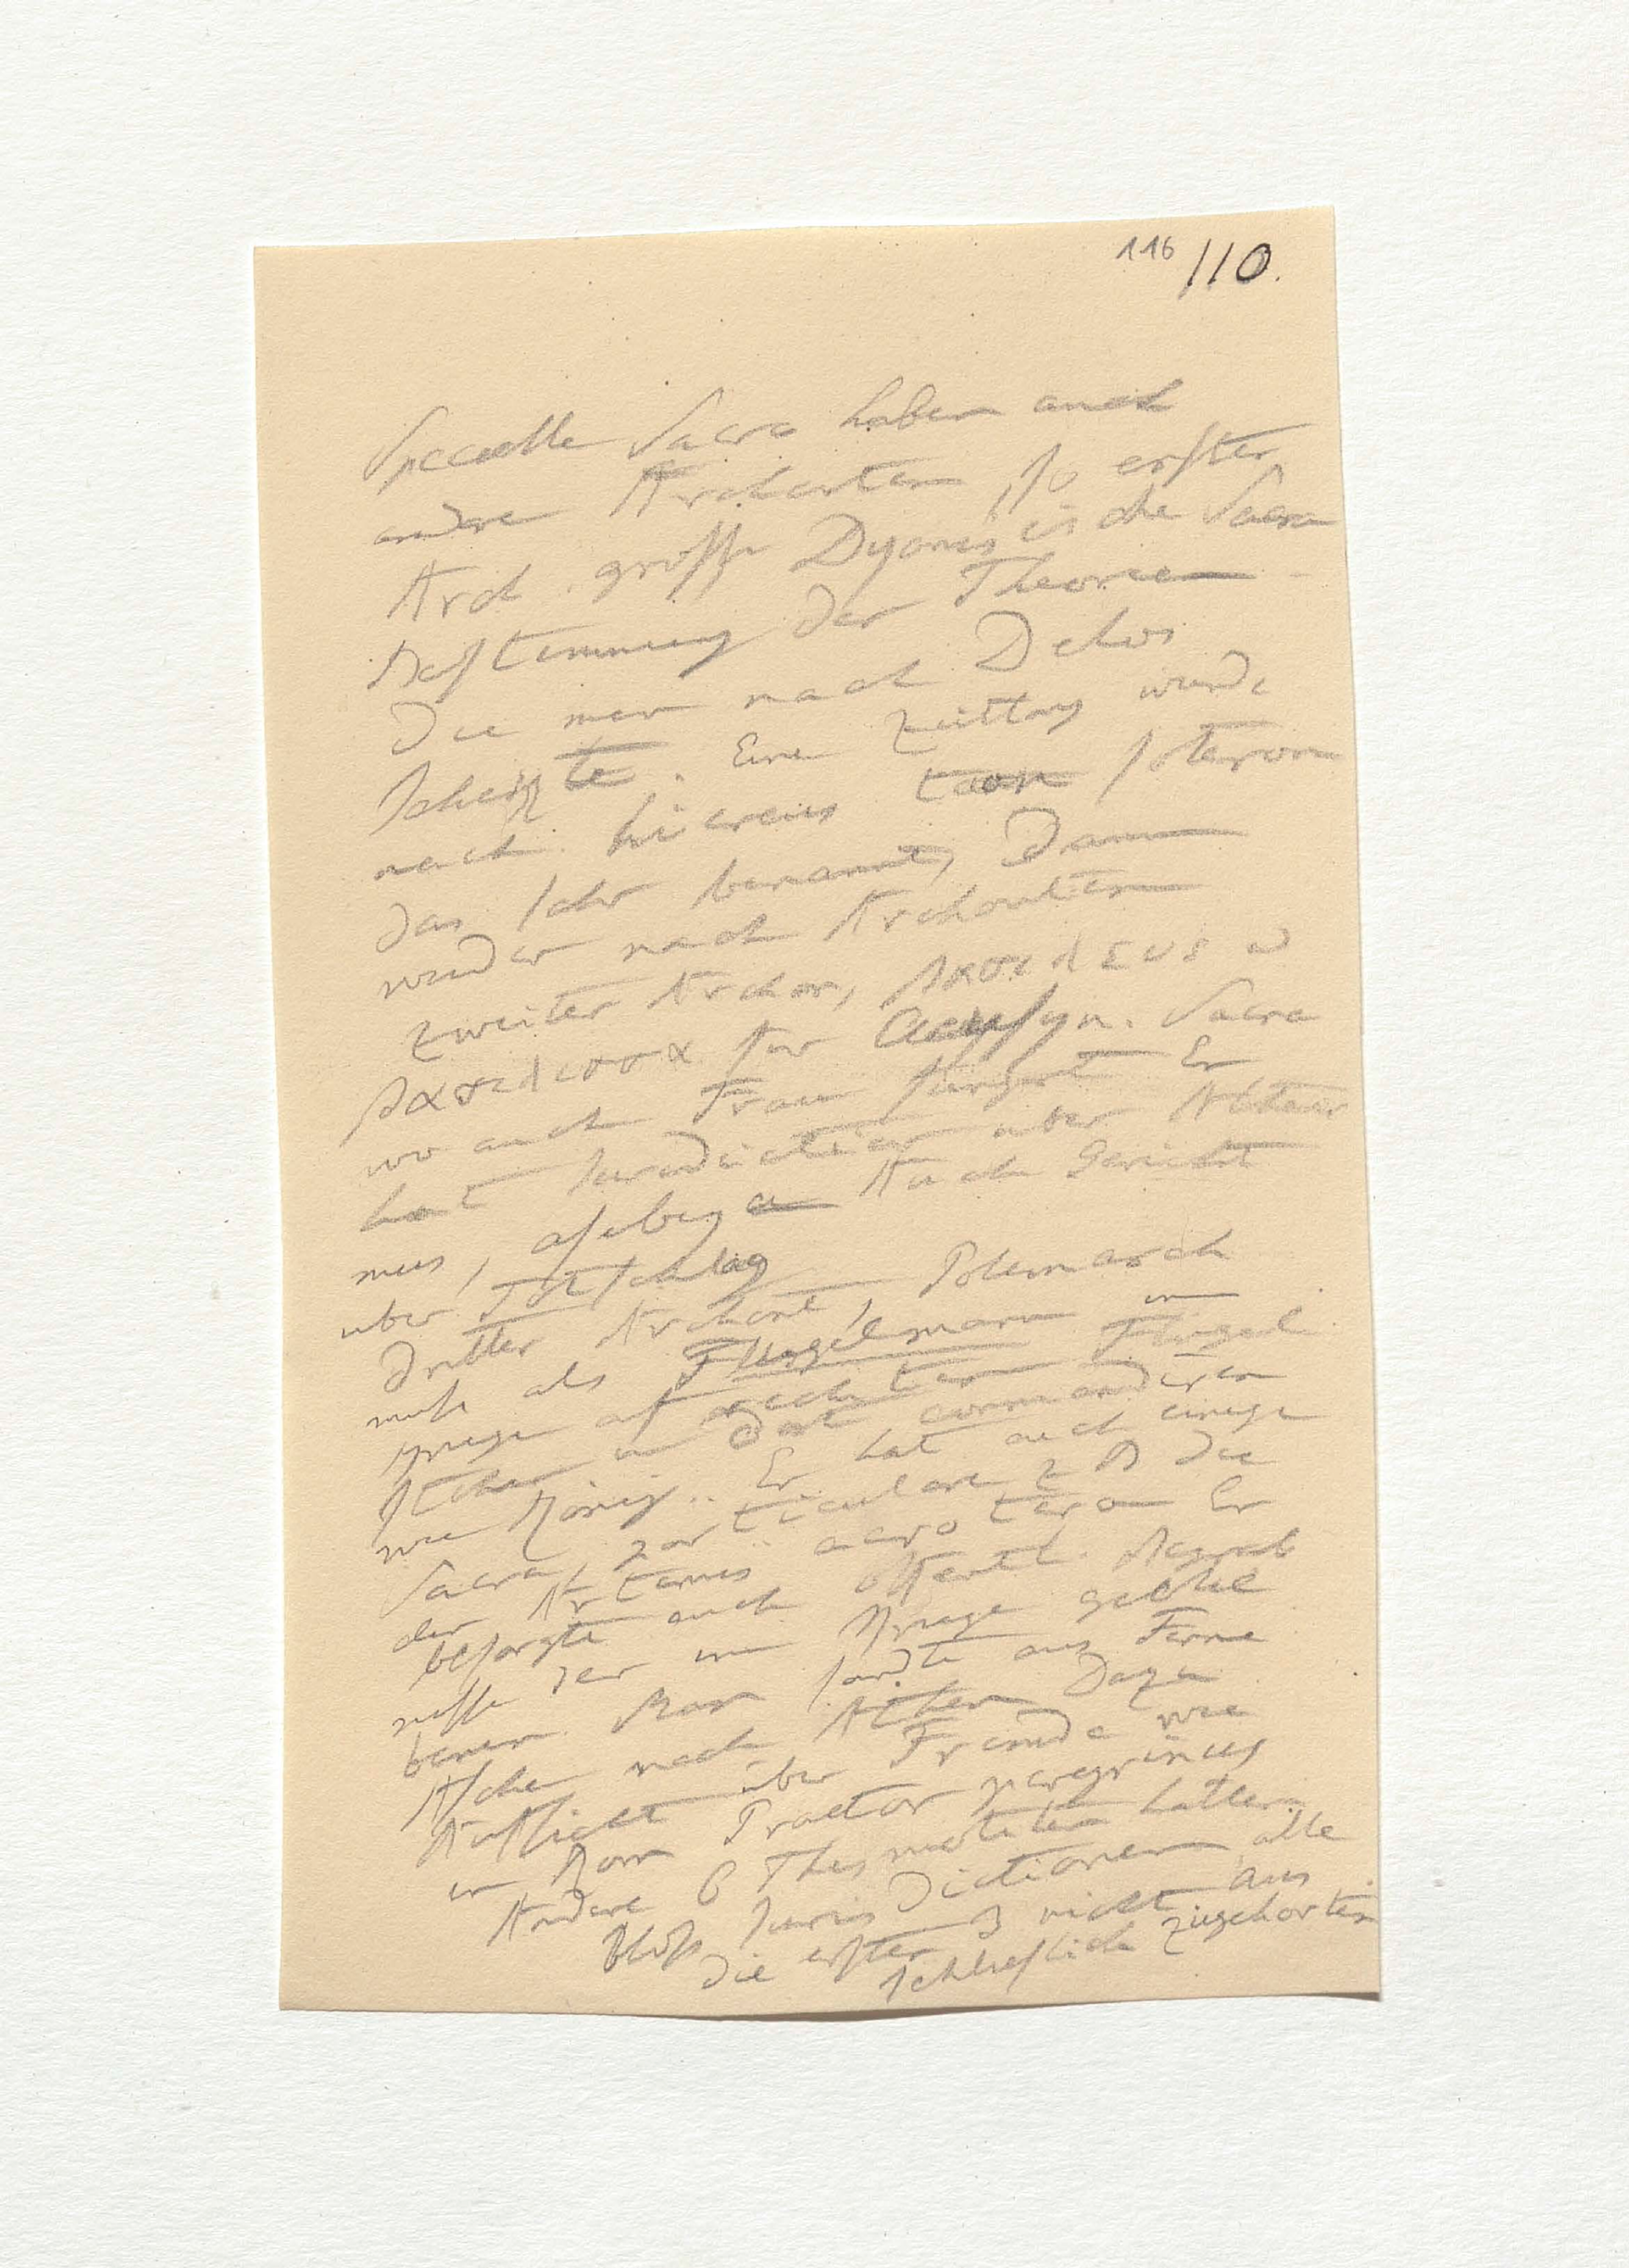 116 110.
Specielle Sacra haben auch
andere Archonten, so erster
Arch. grosse Dyonisische Sacra
Bestimmung der Theorien
die man nach Delos
schickte. Eine Zeitlang wurde
nach hiereus toon soteron
das Jahr benannt, dann
wieder nach Archonten
zweiter Archon, βασιλευς u
βασιλισσα für Eleusyn. Sacra
wo auch Frau fungirt Er
hat Jurisdiction über Athener
mus, asebeya Auch Gericht
über Totschlag
dritter Archont, Polemarch
muss als Flügelmann im
Kriege af rechten Flügel
stehen u dort commandiren
wie König. Er hat auch einige
Sacra, particulare z B die
der Artemis agrotera Er
besorgte auch öffentl. Begräb
nisse der im Kriege geblie
benen. Man sandte aus Ferne
Asche nach Athen Dazu
Aufsicht über Fremde wie
in Rom Praetor peregrinus
Andere 6 Thesmotheten hatten
bloss Jurisdictionen alle
die ersten 3 nicht aus
schliesslich zugehörten